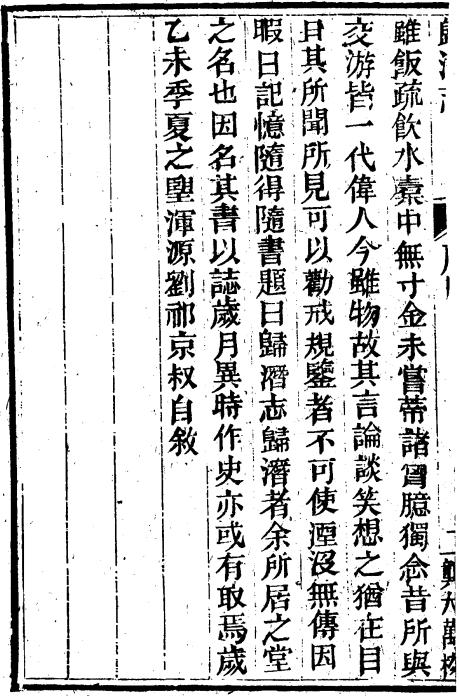 歸潛志
雖飯疏飲水橐中無寸金未嘗蔕諸胷臆獨念昔所與
交游皆一代偉人今雖物故其言論談笑想之猶在目
且其所聞所見可以勸戒規鑒者不可使湮沒無傳因
暇日記憶隨得隨書題曰歸潛志歸潛者余所居之堂
之名也因名其書以誌歲月異時作史亦或有取焉歲
乙未季夏之望渾源劉祁京叔自敘